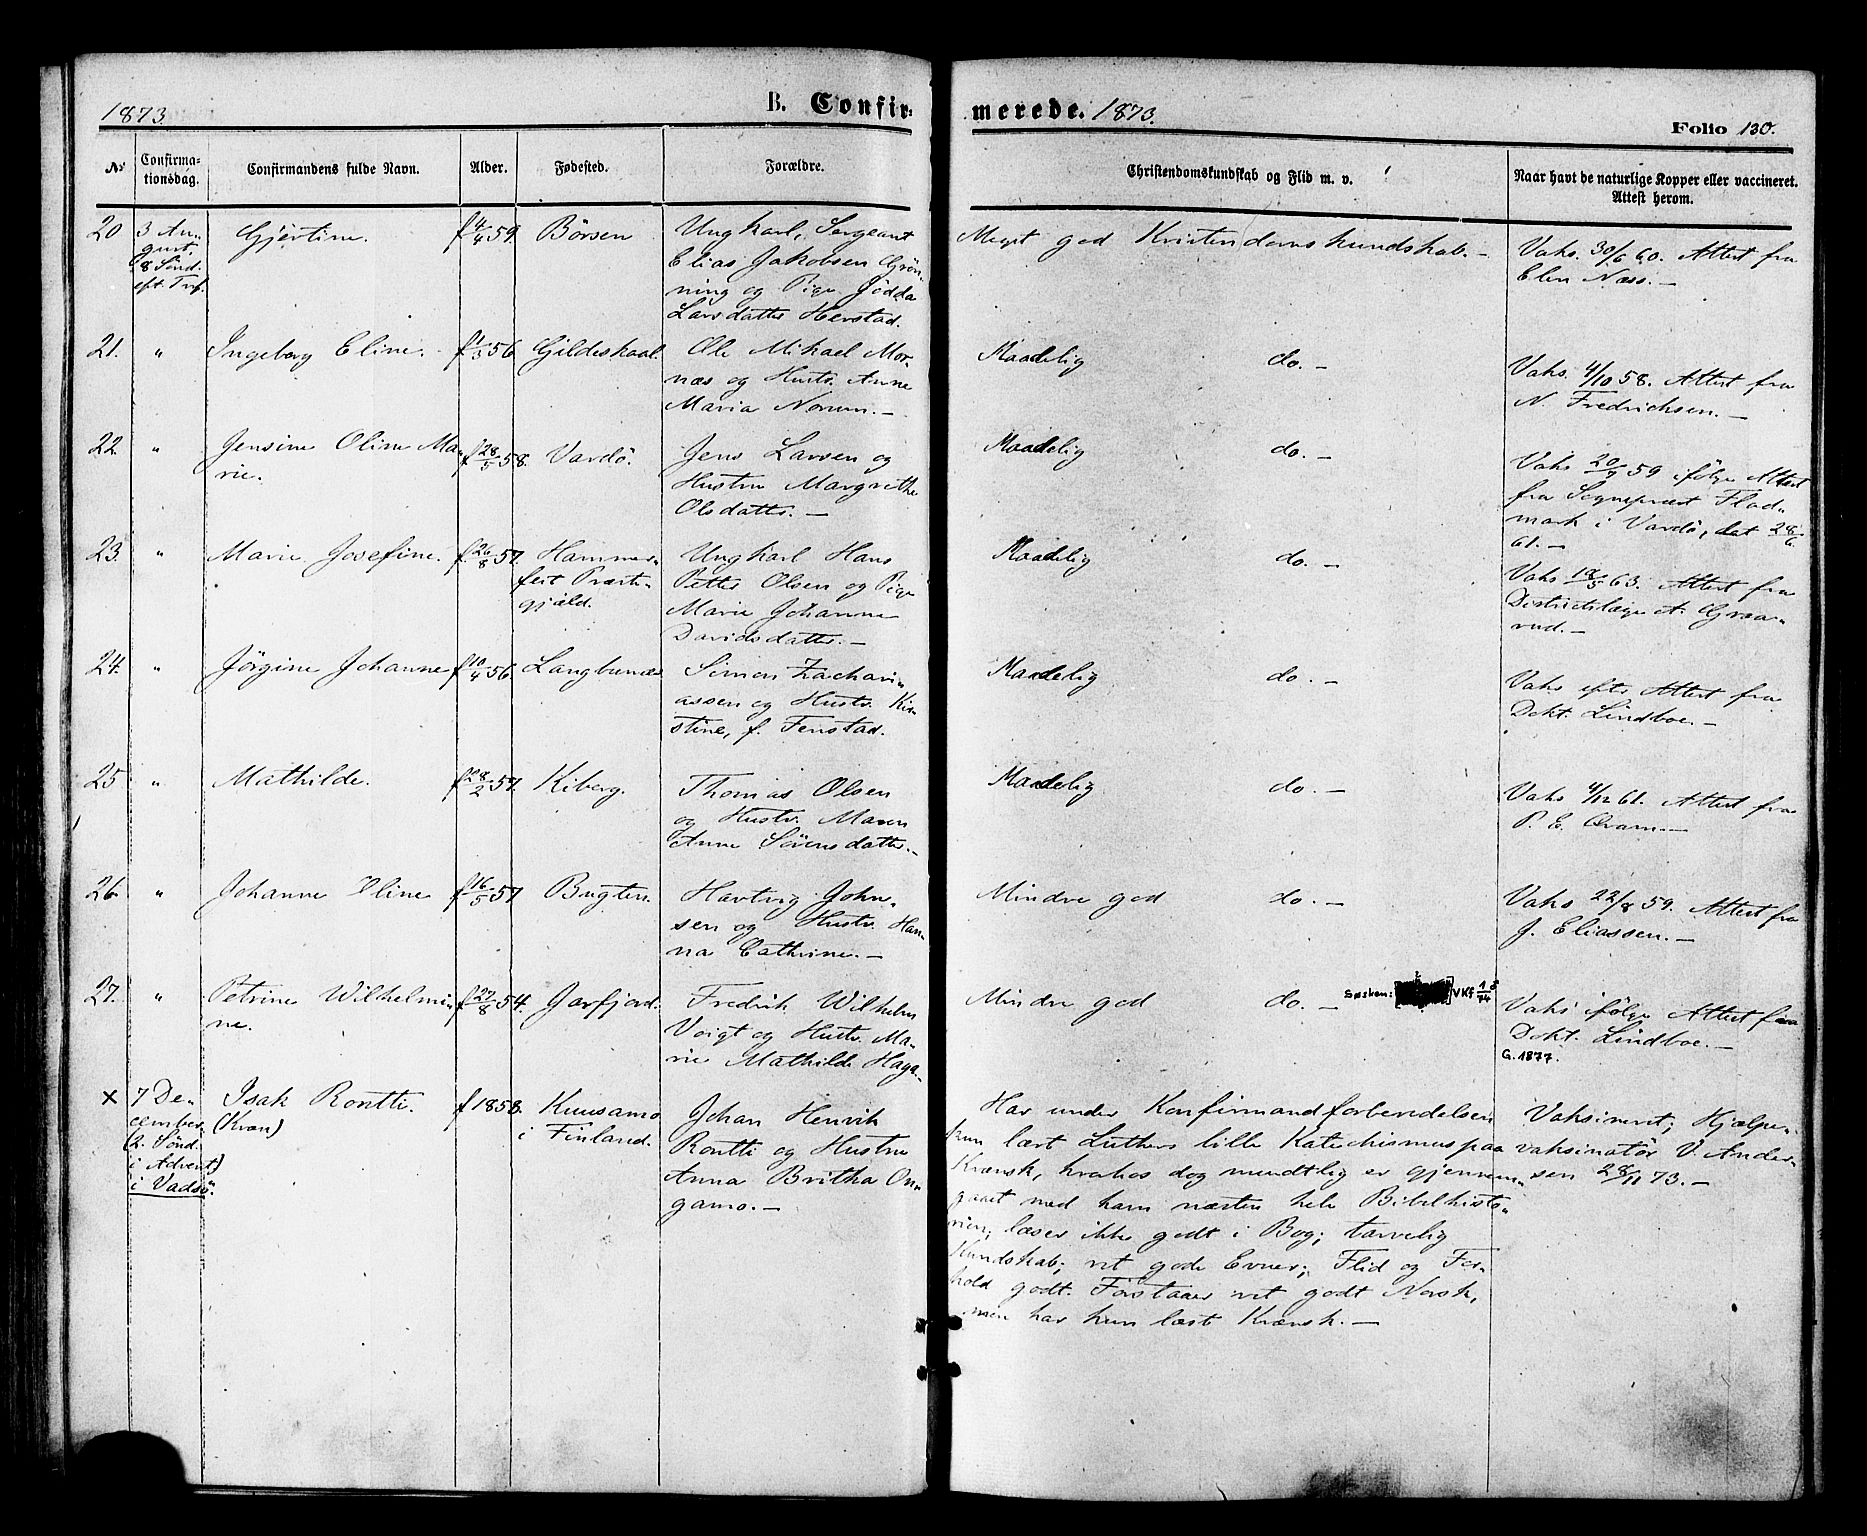 1873. B. Confir- merede. 1873.
Folio 130.
No Confirma-tionsdag. Confirmandens fulde Navn. Alder. Fødested. Forældre. Christendomskundskab og Flid m. v. Naar havt de naturlige Kopper eller vaccineret. Attest herom.
20 3 Au-
gust,
8 Sönd.
eft. Tref.
Gjertine.
f 4/4 59.
Börsen
Ungkarl, Sergeant
Elias Jakobsen Grön-
ning og Pige Jödda
Larsdatter Herstad.
Meget god Kristendomskundskab. -
Vaks. 30/6 60. Attest fra
Elen Næss. -
21. "
Ingeborg Eline.
f 1/3 56.
Gildeskaal.
Ole Mikael Mor-
næs og Hustr. Anne
Maria Norum. -
Maadelig do. -
Vaks. 4/10 58. Attest fra
N. Fredrichsen. -
22. "
Jensine Oline Ma-
rie.
f 28/5 58.
Vardö.
Jens Larsen og
Hustru Margrethe
Olsdatter. -
Maadelig do. -
Vaks 20/9 59 ifölge Attest
fra Sognepræst Flad-
mark i Vardö, dat 28/6
61. -
23. "
Marie Josefine.
f. 26/8 57.
Hammer-
fest Præste-
gjæld.
Ungkarl Hans
Petter Olsen og Pige
Marie Johanne
Davidsdatter. -
Maadelig do. -
Vaks 18/5 63. Attest fra
Districtslæge ct. Graa-
rud. -
24. "
Jörgine Johanne
f 10/4 56.
Langbunæs.
Simon Zachari-
assen og Hustr. Kir-
stine, f. Fenstad.
Maadelig do. -
Vaks efter Attest fra
Dokt. Lindboe. -
25 "
Mathilde.
f 28/2 57.
Kiberg.
Thomas Olsen
og Hustr. Maren
Anne Sörensdatter. -
Maadelig do. -
Vaks 4/12 61. Attest fra
P. E. Qvam. -
26. "
Johanne Oline
f 16/5 57
Bugten.
Hartvig John-
sen og Hustr. Han-
na Cathrine. -
Mindre god do. -
Vaks 22/8 59. Attest fra
J. Eliassen. -
27. "
Petrine Wilhelmi-
ne.
f 27/8 54.
Jarfjord.
Fredrik Wilhelm
Voigt og Hustr. Ma-
rie Mathilde Haga. -
Mindre god do. - Søsken: VKf
Vaks ifölge Attest fra
Dokt. Lindboe. -
G. 1877.
x 7 De-
cember
(2. Sönd.
i Advent)
i Vadsö.
Isak Rontti.
(Kvæn)
f 1858.
Kuusamo
i Finland.
Johan Henrik
Rontti og Hustru
Anna Britha On-
gamo. -
Har under Konfirmandforberedelsen
kun læst Luthers lille Katechismus paa
Kvænsk, hvorhos dog mundtlig er gjennem-
gaaet med ham næsten hele Bibelhisto-
rien; læser ikke godt i Bog; tarvelig
Kundskab; ret gode Evner; Flid og For-
hold godt. Forstaaer ret godt Norsk,
men har kun læst Kvænsk. -
Vaksineret; Hjælpe-
vaksinatör V. Ander-
sen 28/11 73. -